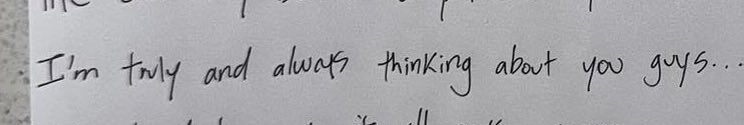 I'm truly and always thinking about you guys...